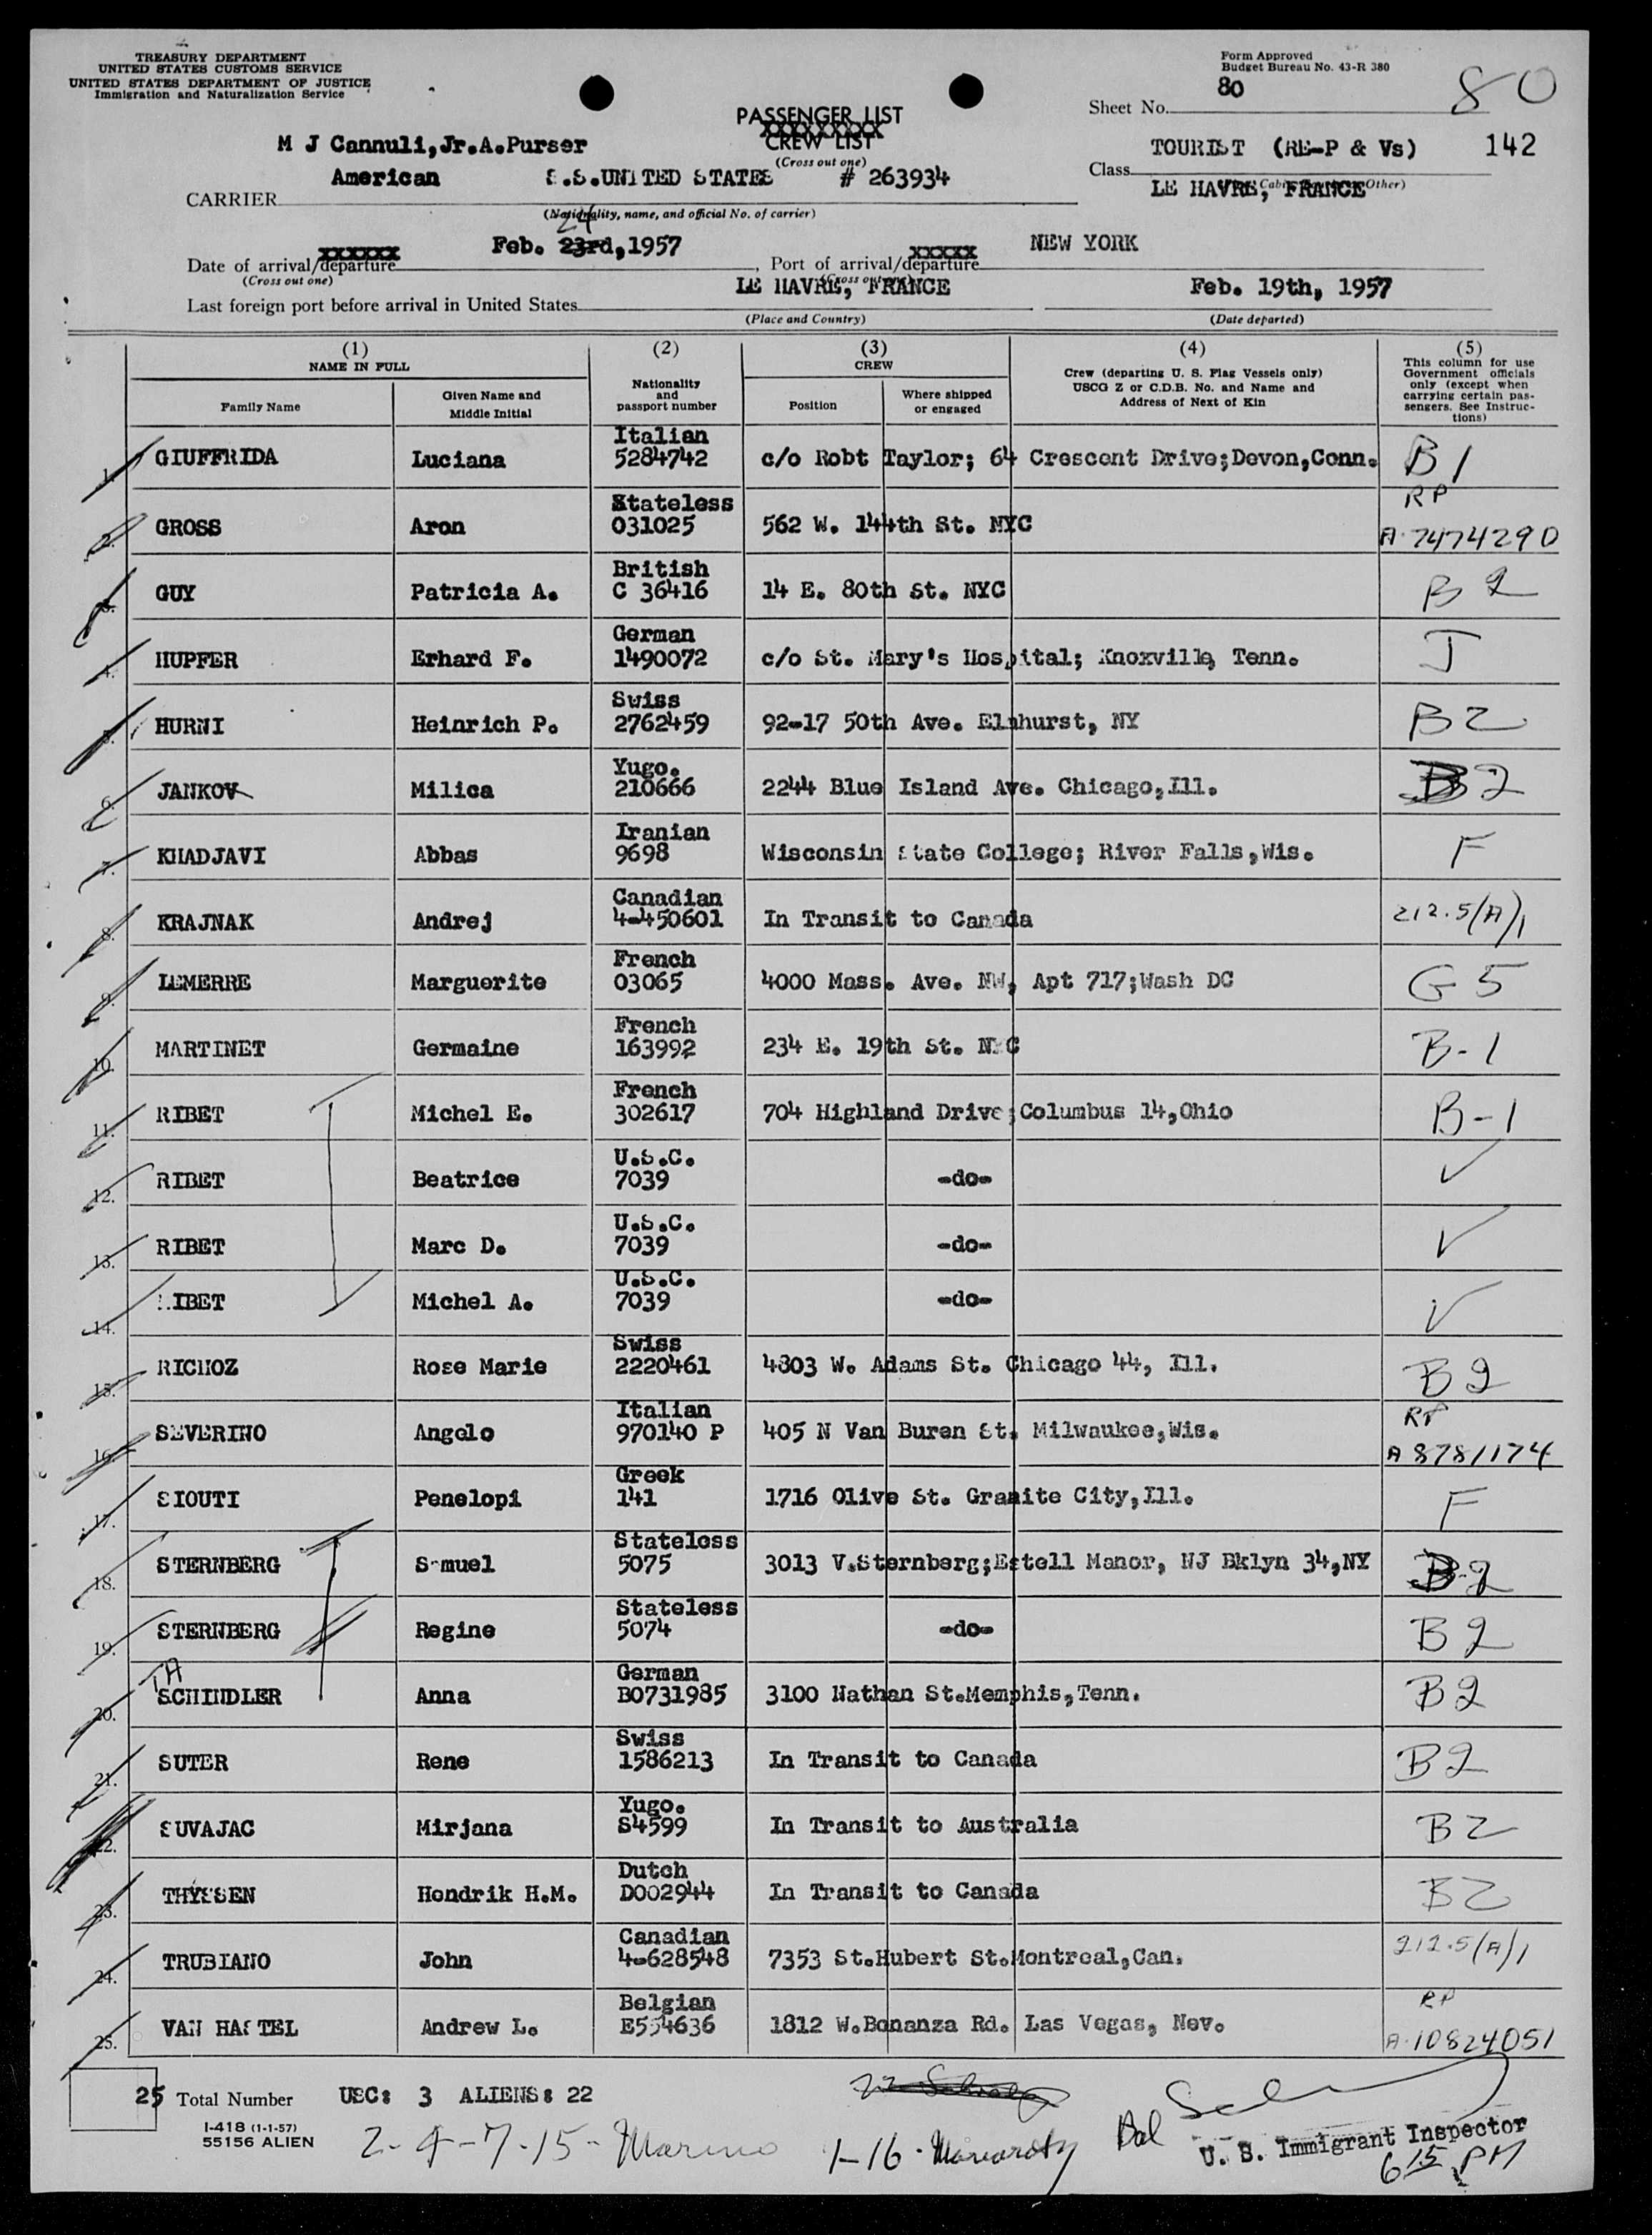 TREASURY DEPARTMENT
UNITED STATES CUSTOMS SERVICE
UNITED STATES DEPARTMENT OF JUSTICE
Immigration and Naturalization Service
Form Approved
Budget Bureau No. 43-R 380
Sheet No. 80
80
PASSENGER LIST
XXXXXXXXX
CREW LIST
(Cross out one)
M J Cannuli,Jr.A.Purser
TOURIST (RE-P & Vs) 142
Class
LE HAVRE, FRANCE
CARRIER American S.S.UNITED STATES # 263934
(Nationality, name, and official No. of carrier)
24
Date of arrival/departure Feb. 23rd,1957, Port of arrival/departure NEW YORK
(Cross out one)
Last foreign port before arrival in United States LE HAVRE, FRANCE Feb. 19th, 1957
(Place and Country) (Date departed)
(1) NAME IN FULL
Family Name
Given Name and Middle Initial
(2) Nationality and passport number
(3) CREW
Position
Where shipped or engaged
(4) Crew (departing U. S. Flag Vessels only) USCG Z or C.D.B. No. and Name and Address of Next of Kin
(5) This column for use Government officials only (except when carrying certain passengers. See Instructions)
1. GIUFFRIDA Luciana Italian 5284742 c/o Robt Taylor; 64 Crescent Drive;Devon,Conn. B1
2. GROSS Aron Stateless 031025 562 W. 144th St. NYC RP A-7474290
3. GUY Patricia A. British C 36416 14 E. 80th St. NYC B2
4. HUPFER Erhard F. German 1490072 c/o St. Mary's Hospital; Knoxville, Tenn. J
5. HURNI Heinrich P. Swiss 2762459 92-17 50th Ave. Elmhurst, NY B2
6. JANKOV Milica Yugo. 210666 2244 Blue Island Ave. Chicago,Ill. B2
7. KHADJAVI Abbas Iranian 9698 Wisconsin State College; River Falls,Wis. F
8. KRAJNAK Andrej Canadian 4-450601 In Transit to Canada 212.5(A)1
9. LEMERRE Marguerite French 03065 4000 Mass. Ave. NW, Apt 717;Wash DC G5
10. MARTINET Germaine French 163992 234 E. 19th St. NYC B-1
11. RIBET Michel E. French 302617 704 Highland Drive;Columbus 14,Ohio B-1
12. RIBET Beatrice U.S.C. 7039 -do- ✓
13. RIBET Marc D. U.S.C. 7039 -do- ✓
14. RIBET Michel A. U.S.C. 7039 -do- ✓
15. RICHOZ Rose Marie Swiss 2220461 4803 W. Adams St. Chicago 44, Ill. B2
16. SEVERINO Angelo Italian 970140 P 405 N Van Buren St. Milwaukee,Wis. RP A8781174
17. SIOUTI Penelopi Greek 141 1716 Olive St. Granite City,Ill. F
18. STERNBERG Samuel Stateless 5075 3013 V.Sternberg;Estell Manor, NJ Bklyn 34,NY B-2
19. STERNBERG Regine Stateless 5074 -do- B2
20. SCHINDLER Anna German B0731985 3100 Nathan St.Memphis,Tenn. B2
21. SUTER Rene Swiss 1586213 In Transit to Canada B2
22. SUVAJAC Mirjana Yugo. S4599 In Transit to Australia B2
23. THYSSEN Hendrik H.M. Dutch D002944 In Transit to Canada B2
24. TRUBIANO John Canadian 4-628548 7353 St.Hubert St.Montreal,Can. 212.5(A)1
25. VAN HASTEL Andrew L. Belgian E554636 1812 W.Bonanza Rd. Las Vegas, Nev. RP A-10824051
25 Total Number USC: 3 ALIENS: 22
I-418 (1-1-57)
55156 ALIEN
2-4-7-15- Marino
1-16-
Bal
U. S. Immigrant Inspector
6 15 PM